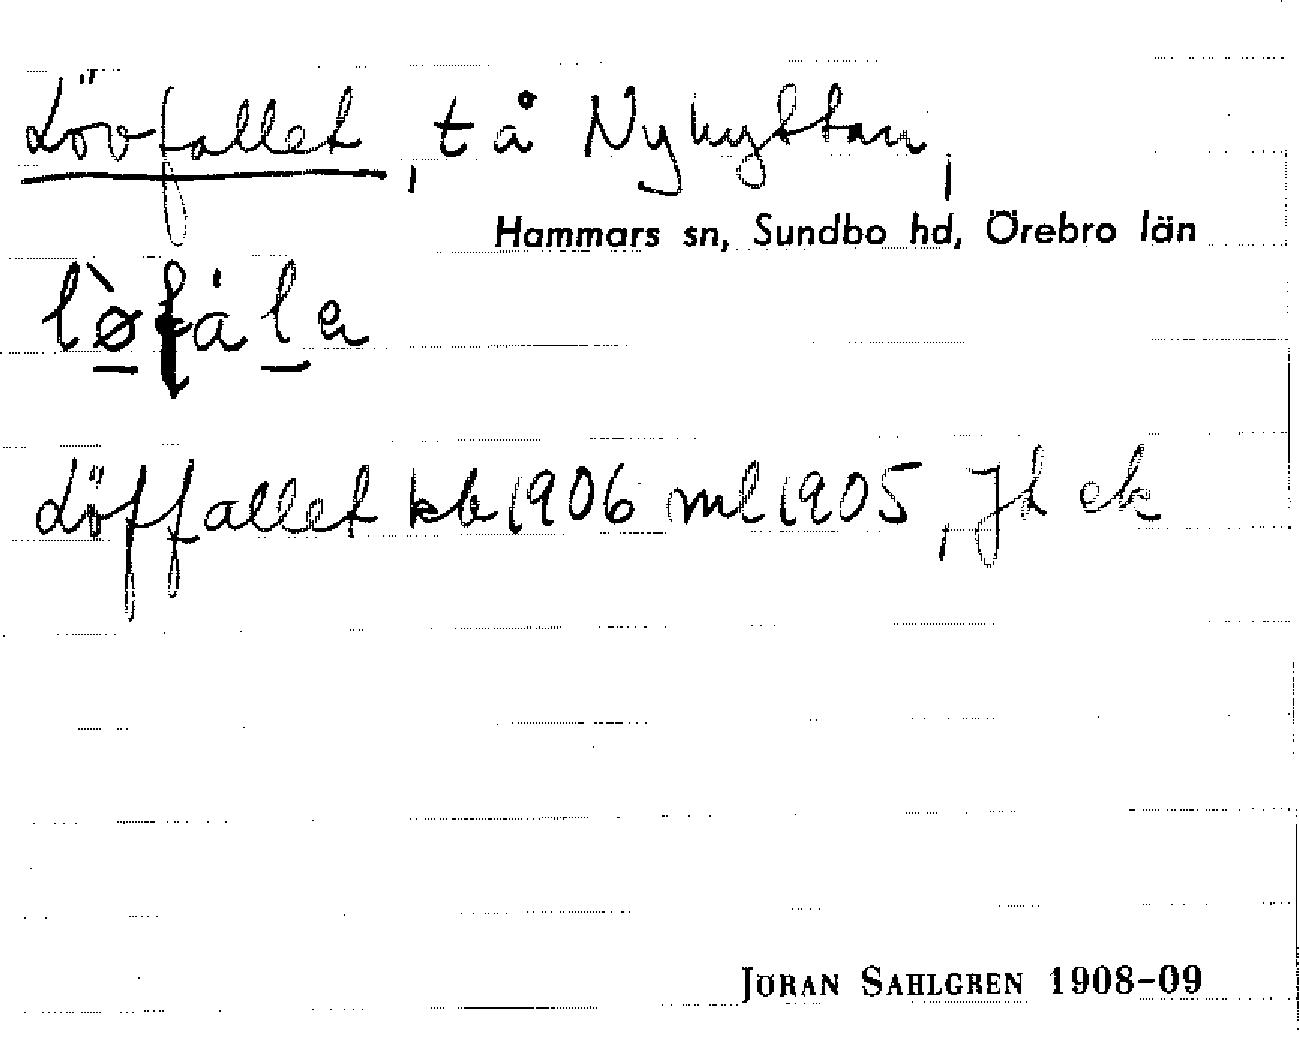 Lövfallet, t å Nyhyttan,
Hammars sn, Sundbo hd, Örebro län
Löffallet kb 1906 ml 1905, Jd ek
JÖRAN SAHLGREN 1908–09